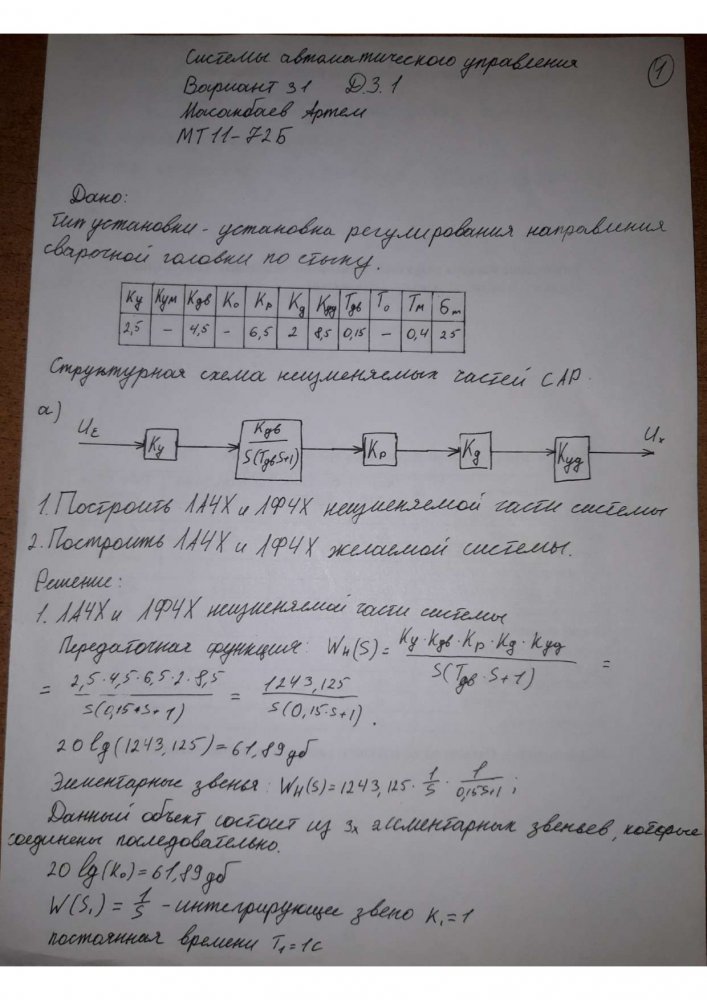 Системы автоматического управления
①
Вариант 31 Д.З.1
Масанбаев Артем
МТ11-72Б
Дано:
Тип установки - установка регулирования направления
сварочной головки по стыку.
Kу Kум Kдв K₀ Kр Kд Kуд Tдв T₀ Tм σm
2,5 – 4,5 – 6,5 2 8,5 0,15 – 0,4 25
Структурная схема неизменяемых частей САР.
а)
Uε Kу Kдв / S(TдвS+1) Kр Kд Kуд Uх
1. Построить ЛАЧХ и ЛФЧХ неизменяемой части системы
2. Построить ЛАЧХ и ЛФЧХ желаемой системы.
Решение:
1. ЛАЧХ и ЛФЧХ неизменяемой части системы
Передаточная функция: Wн(S) = Kу·Kдв·Kр·Kд·Kуд / S(Tдв·S+1) =
= 2,5·4,5·6,5·2·8,5 / S(0,15*S+1) = 1243,125 / S(0,15·S+1).
20 lg(1243,125) = 61,89 дб
Элементарные звенья: Wн(S) = 1243,125 · 1/S · 1/0,15S+1;
Данный объект состоит из 3х элементарных звеньев, которые
соединены последовательно.
20 lg(K₀) = 61,89 дб
W(S₁) = 1/S - интегрирующее звено K₁=1
постоянная времени T₁=1с